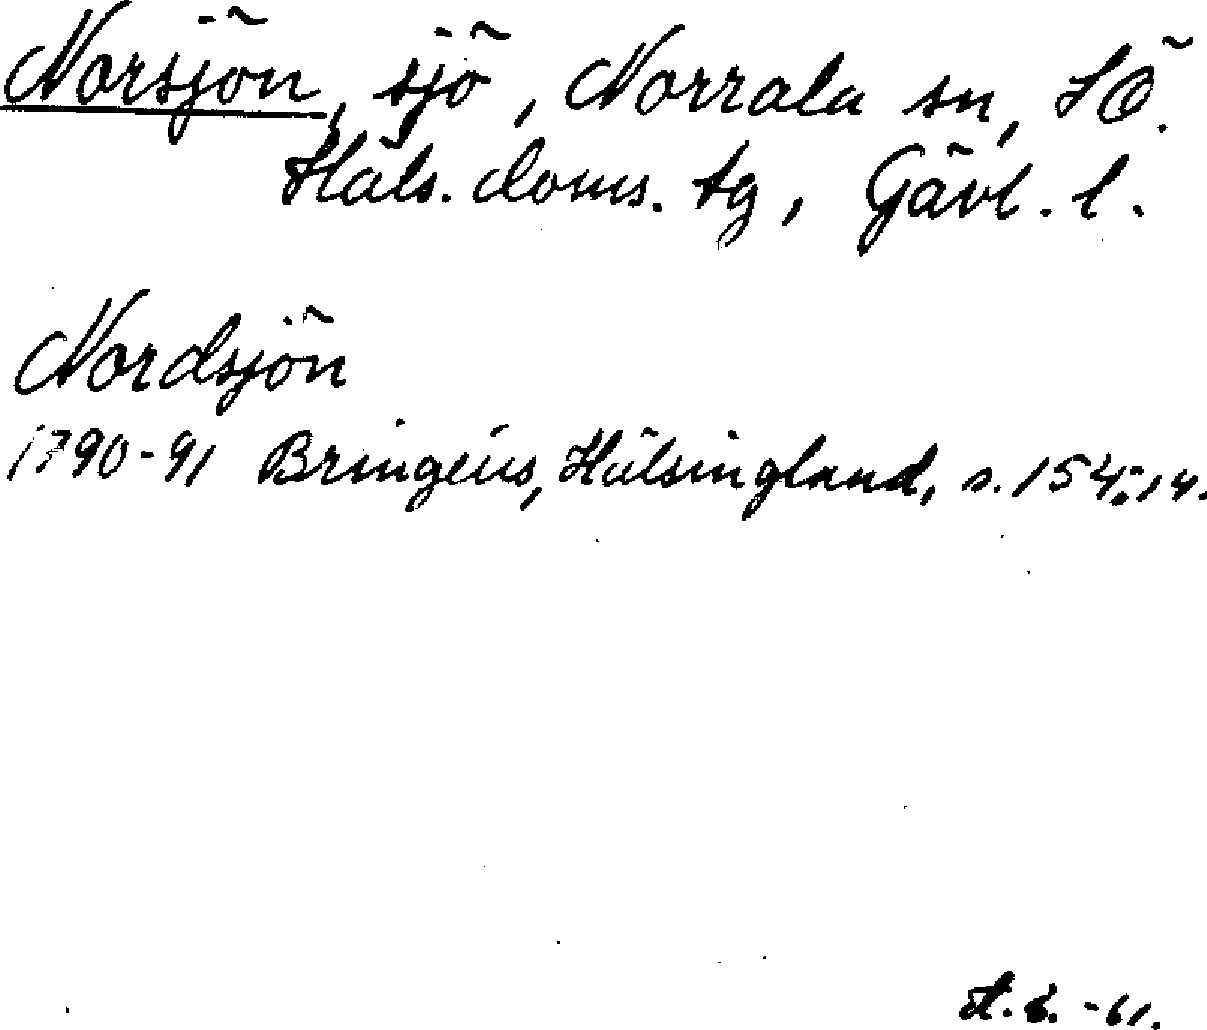 Norsjön, sjö, Norrala sn, SÖ.
Häls. doms. tg, Gävl. l.
Nordsjön
1790-91 Bringéus, Hälsingland, s. 154:
-61.